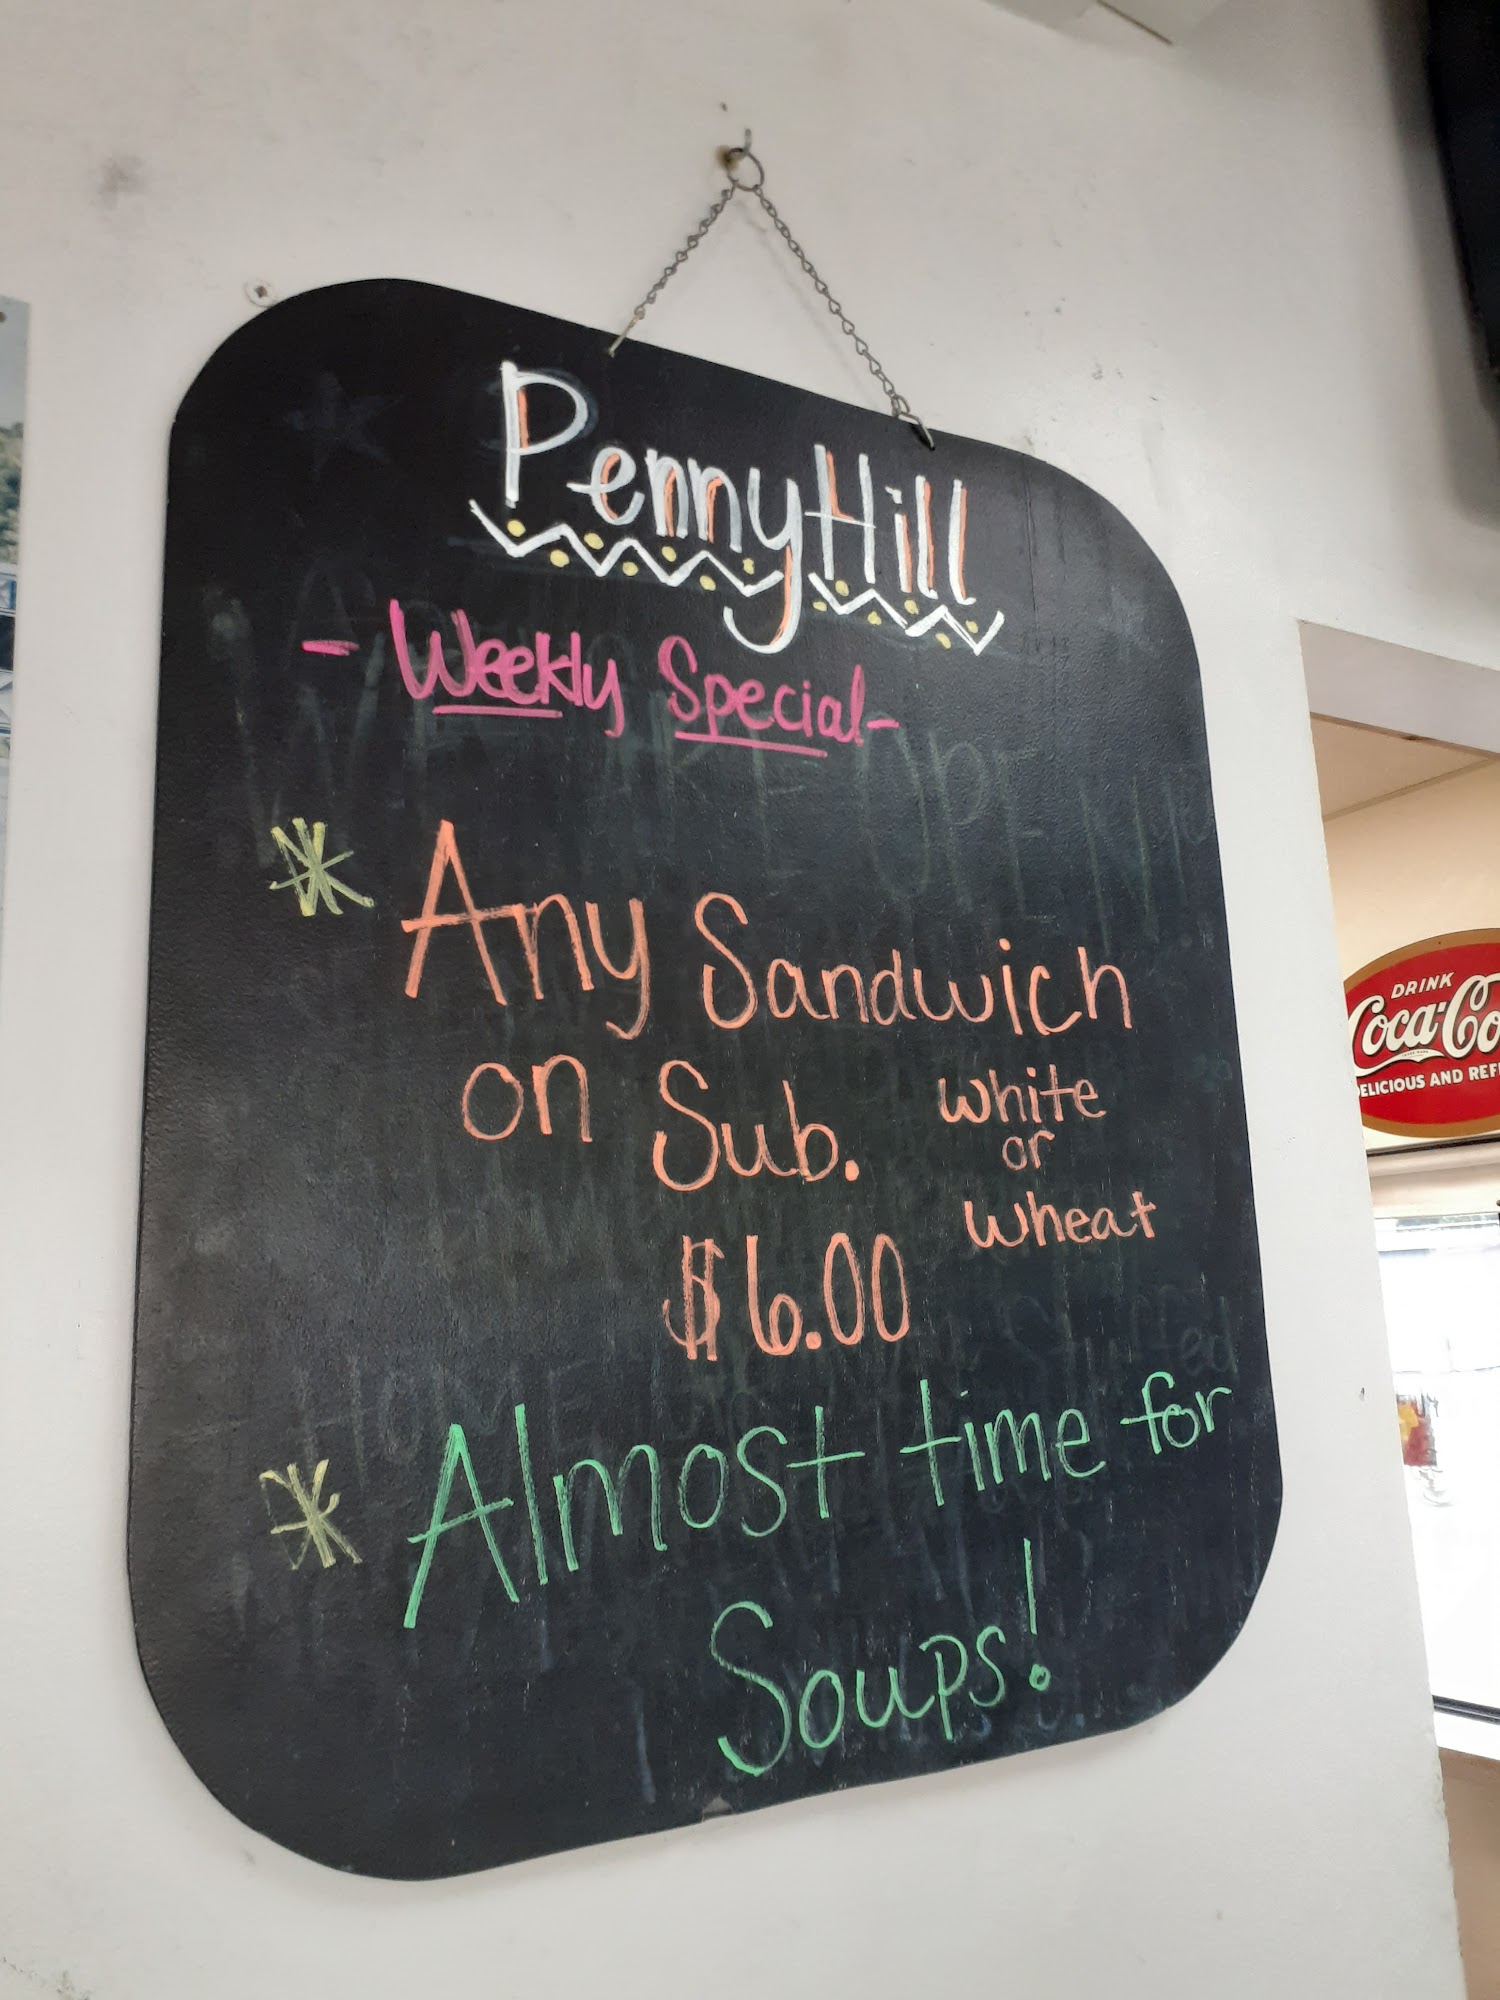 PennyHill
- Weekly Special -
* Any Sandwich
on Sub.
white
or
wheat
$6.00
* Almost time for
Soups!
DRINK
Coca-Co
ELICIOUS AND REF